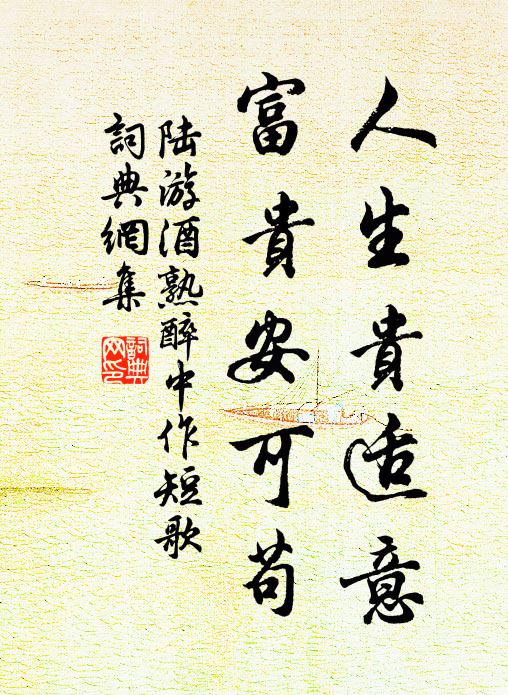 人生貴适意
富貴安可苟
陆游酒熟醉中作短歌
詞典網集
詞典网印